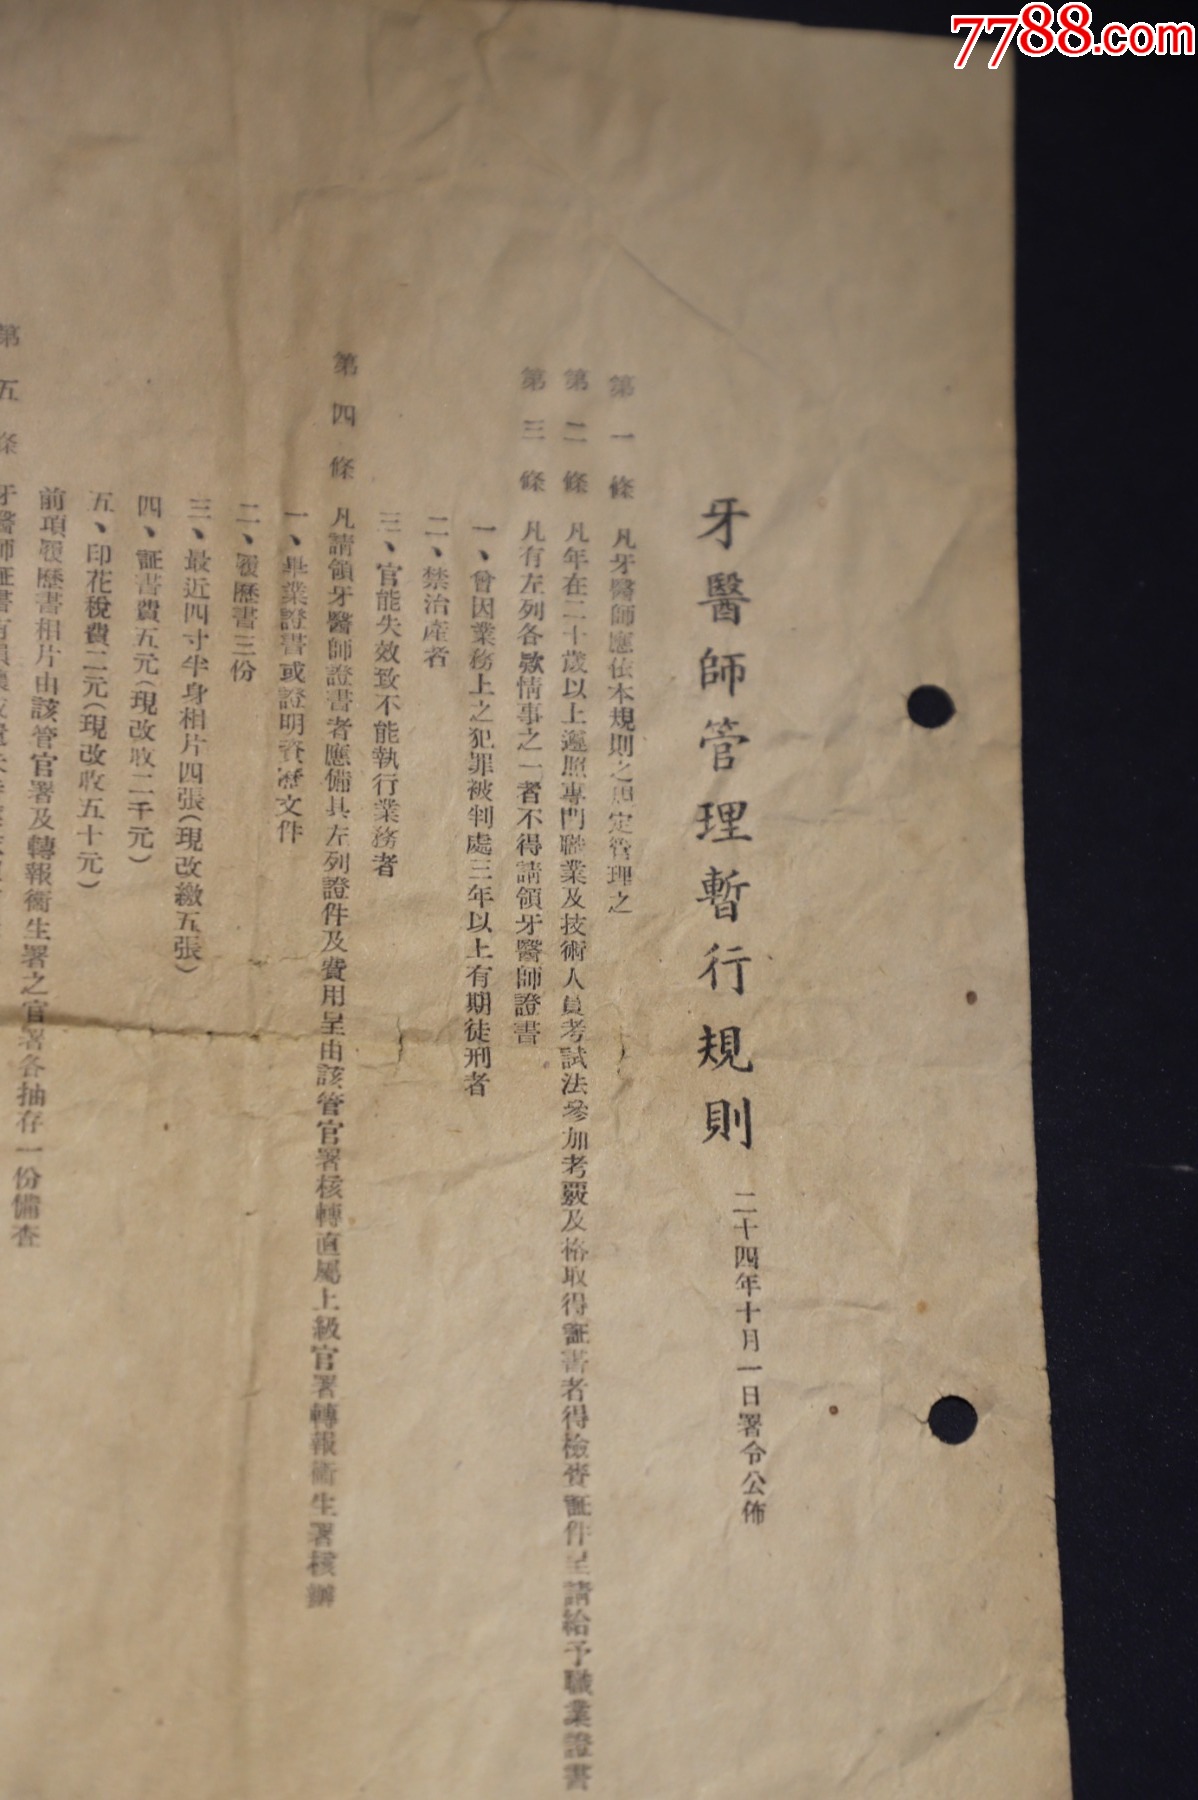 7788.com
牙醫師管理暫行規則
二十四年十月一日署令公佈
第一條 凡牙醫師應依本規則之規定管理之
第二條 凡年在二十歲以上遵照專門職業及技術人員考試法參加考覈及格取得証書者得檢賚証件呈請給予職業證書
第三條 凡有左列各款情事之一者不得請領牙醫師證書
一、曾因業務上之犯罪被判處三年以上有期徒刑者
二、禁治產者
三、官能失效致不能執行業務者
第四條 凡請領牙醫師證書者應備具左列證件及費用呈由該管官署核轉直屬上級官署轉報衛生署核辦
一、畢業證書或證明資歷文件
二、履歷書三份
三、最近四寸半身相片四張(現改繳五張)
四、証書費五元(現改收二千元)
五、印花稅費二元(現改收五十元)
前項履歷書相片由該管官署及轉報衛生署之官署各抽存一份備查
第五條 牙醫師証書有損